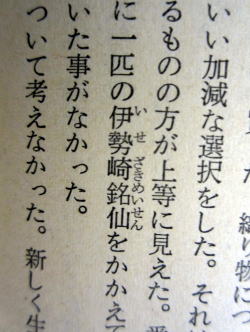 り物につ
いい加減な選択をした。それ
るものの方が上等に見えた。
に一匹の伊勢崎銘仙をかかえて
いせざきめいせん
いた事がなかった。
ついて考えなかった。新しく生